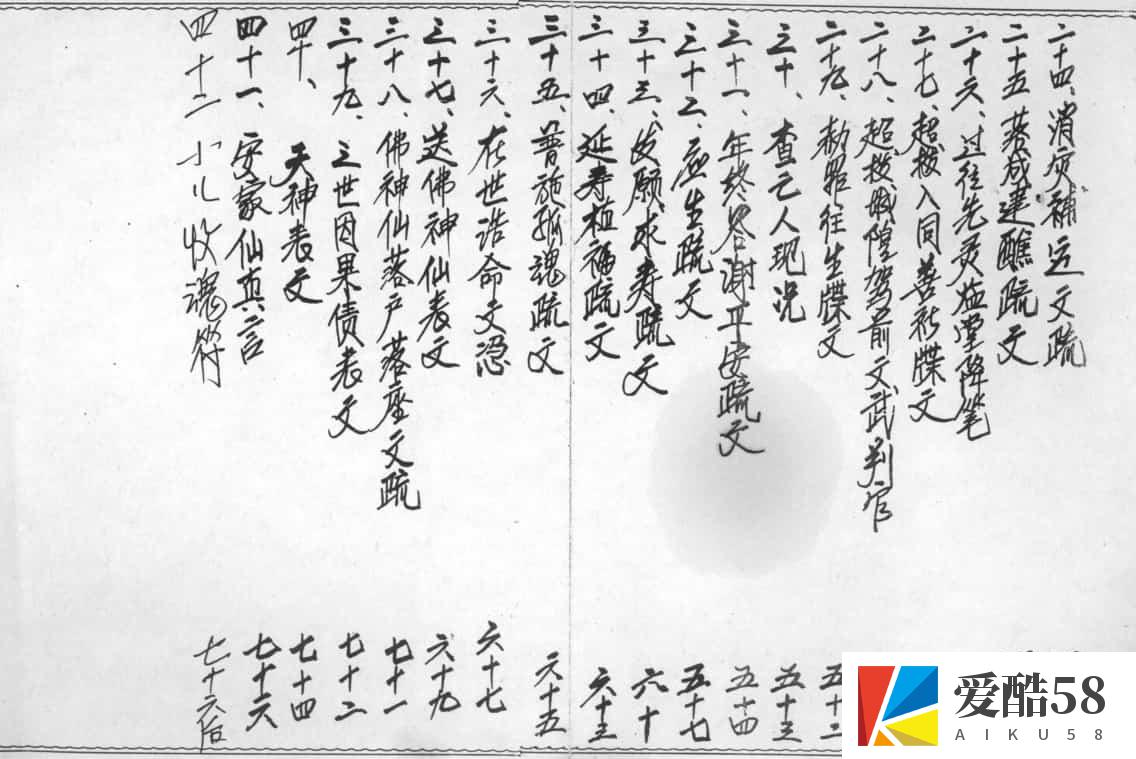 二十四、消灾補运文疏
二十五、落成建醮疏文
二十六、过往先灵临堂降笔
二十七、超拔入同善社牒文
二十八、超拔城隍驾前文武判官
二十九、敕照往生牒文 五十二
三十、查亡人现况 五十三
三十一、年终答谢平安疏文 五十四
三十二、庆生疏文 五十七
三十三、发愿求寿疏文 六十
三十四、延寿植福疏文 六十三
三十五、普施孤魂疏文 六十五
三十六、在世诰命文 六十七
三十七、送佛神仙表文 六十九
三十八、佛神仙落户落座文疏 七十一
三十九、三世因果债表文 七十二
四十、天神表文 七十四
四十一、安家仙真言 七十六
四十二 小儿收魂符 七十六后
爱酷58
AIKU58